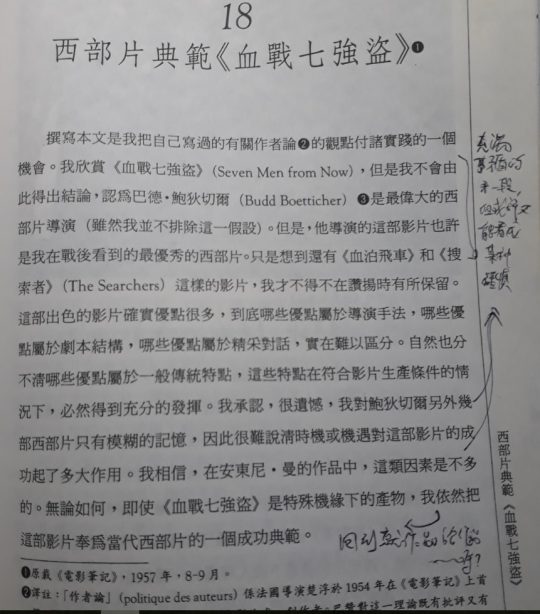 18
西部片典範《血戰七強盜》❶
撰寫本文是我把自己寫過的有關作者論❷的觀點付諸實踐的一個
機會。我欣賞《血戰七強盜》(Seven Men from Now),但是我不會由
此得出結論,認爲巴德·鮑狄切爾(Budd Boetticher)❸是最偉大的西
部片導演(雖然我並不排除這一假設)。但是,他導演的這部影片也許
是我在戰後看到的最優秀的西部片。只是想到還有《血泊飛車》和《搜
索者》(The Searchers)這樣的影片,我才不得不在讚揚時有所保留。
這部出色的影片確實優點很多,到底哪些優點屬於導演手法,哪些優
點屬於劇本結構,哪些優點屬於精采對話,實在難以區分。自然也分
不淸哪些優點屬於一般傳統特點,這些特點在符合影片生產條件的情
況下,必然得到充分的發揮。我承認,很遺憾,我對鮑狄切爾另外幾
部西部片只有模糊的記憶,因此很難說淸時機或機遇對這部影片的成
功起了多大作用。我相信,在安東尼·曼的作品中,這類因素是不多
的。無論如何,即使《血戰七強盜》是特殊機緣下的產物,我依然把
這部影片奉爲當代西部片的一個成功典範。
❶原載《電影筆記》,1957 年,8-9 月。
❷譯註:「作者論」(politique des auteurs)係法國導演楚浮於 1954 年在《電影筆記》上首
西部片典範《血戰七強盜》